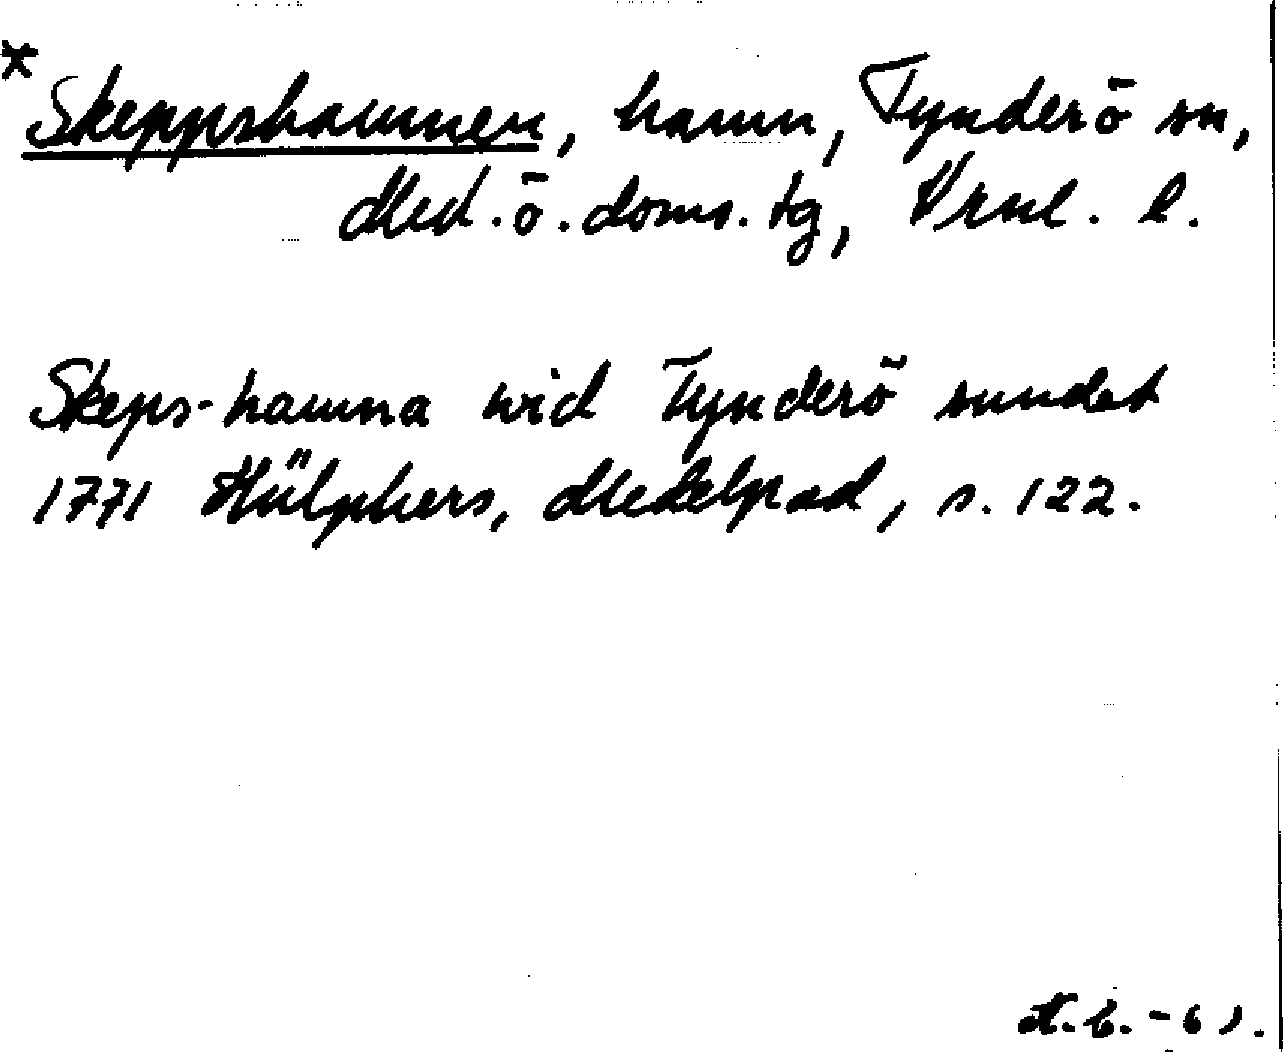 * Skeppshamnen, hamn, Tynderö sn,
Med. ö. doms. tg, Vrnl. l.
Skeps-hamna wid Tynderö sundet
1771 Hülphers, Medelpad, s. 122.